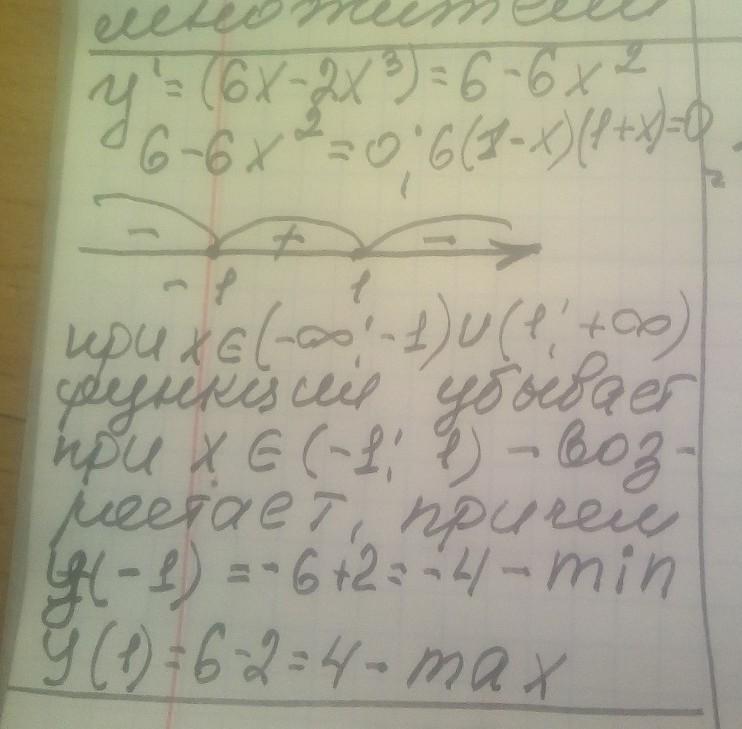 множители
y' = (6x - 2x³) = 6 - 6x²
6 - 6x² = 0; 6(1-x)(1+x)=0
- + -
-1 1
при x ∈ (-∞; -1) ∪ (1; +∞)
функция убывает
при x ∈ (-1; 1) - воз-
растает, причем
y(-1) = -6+2 = -4 - min
y(1) = 6-2 = 4 - max